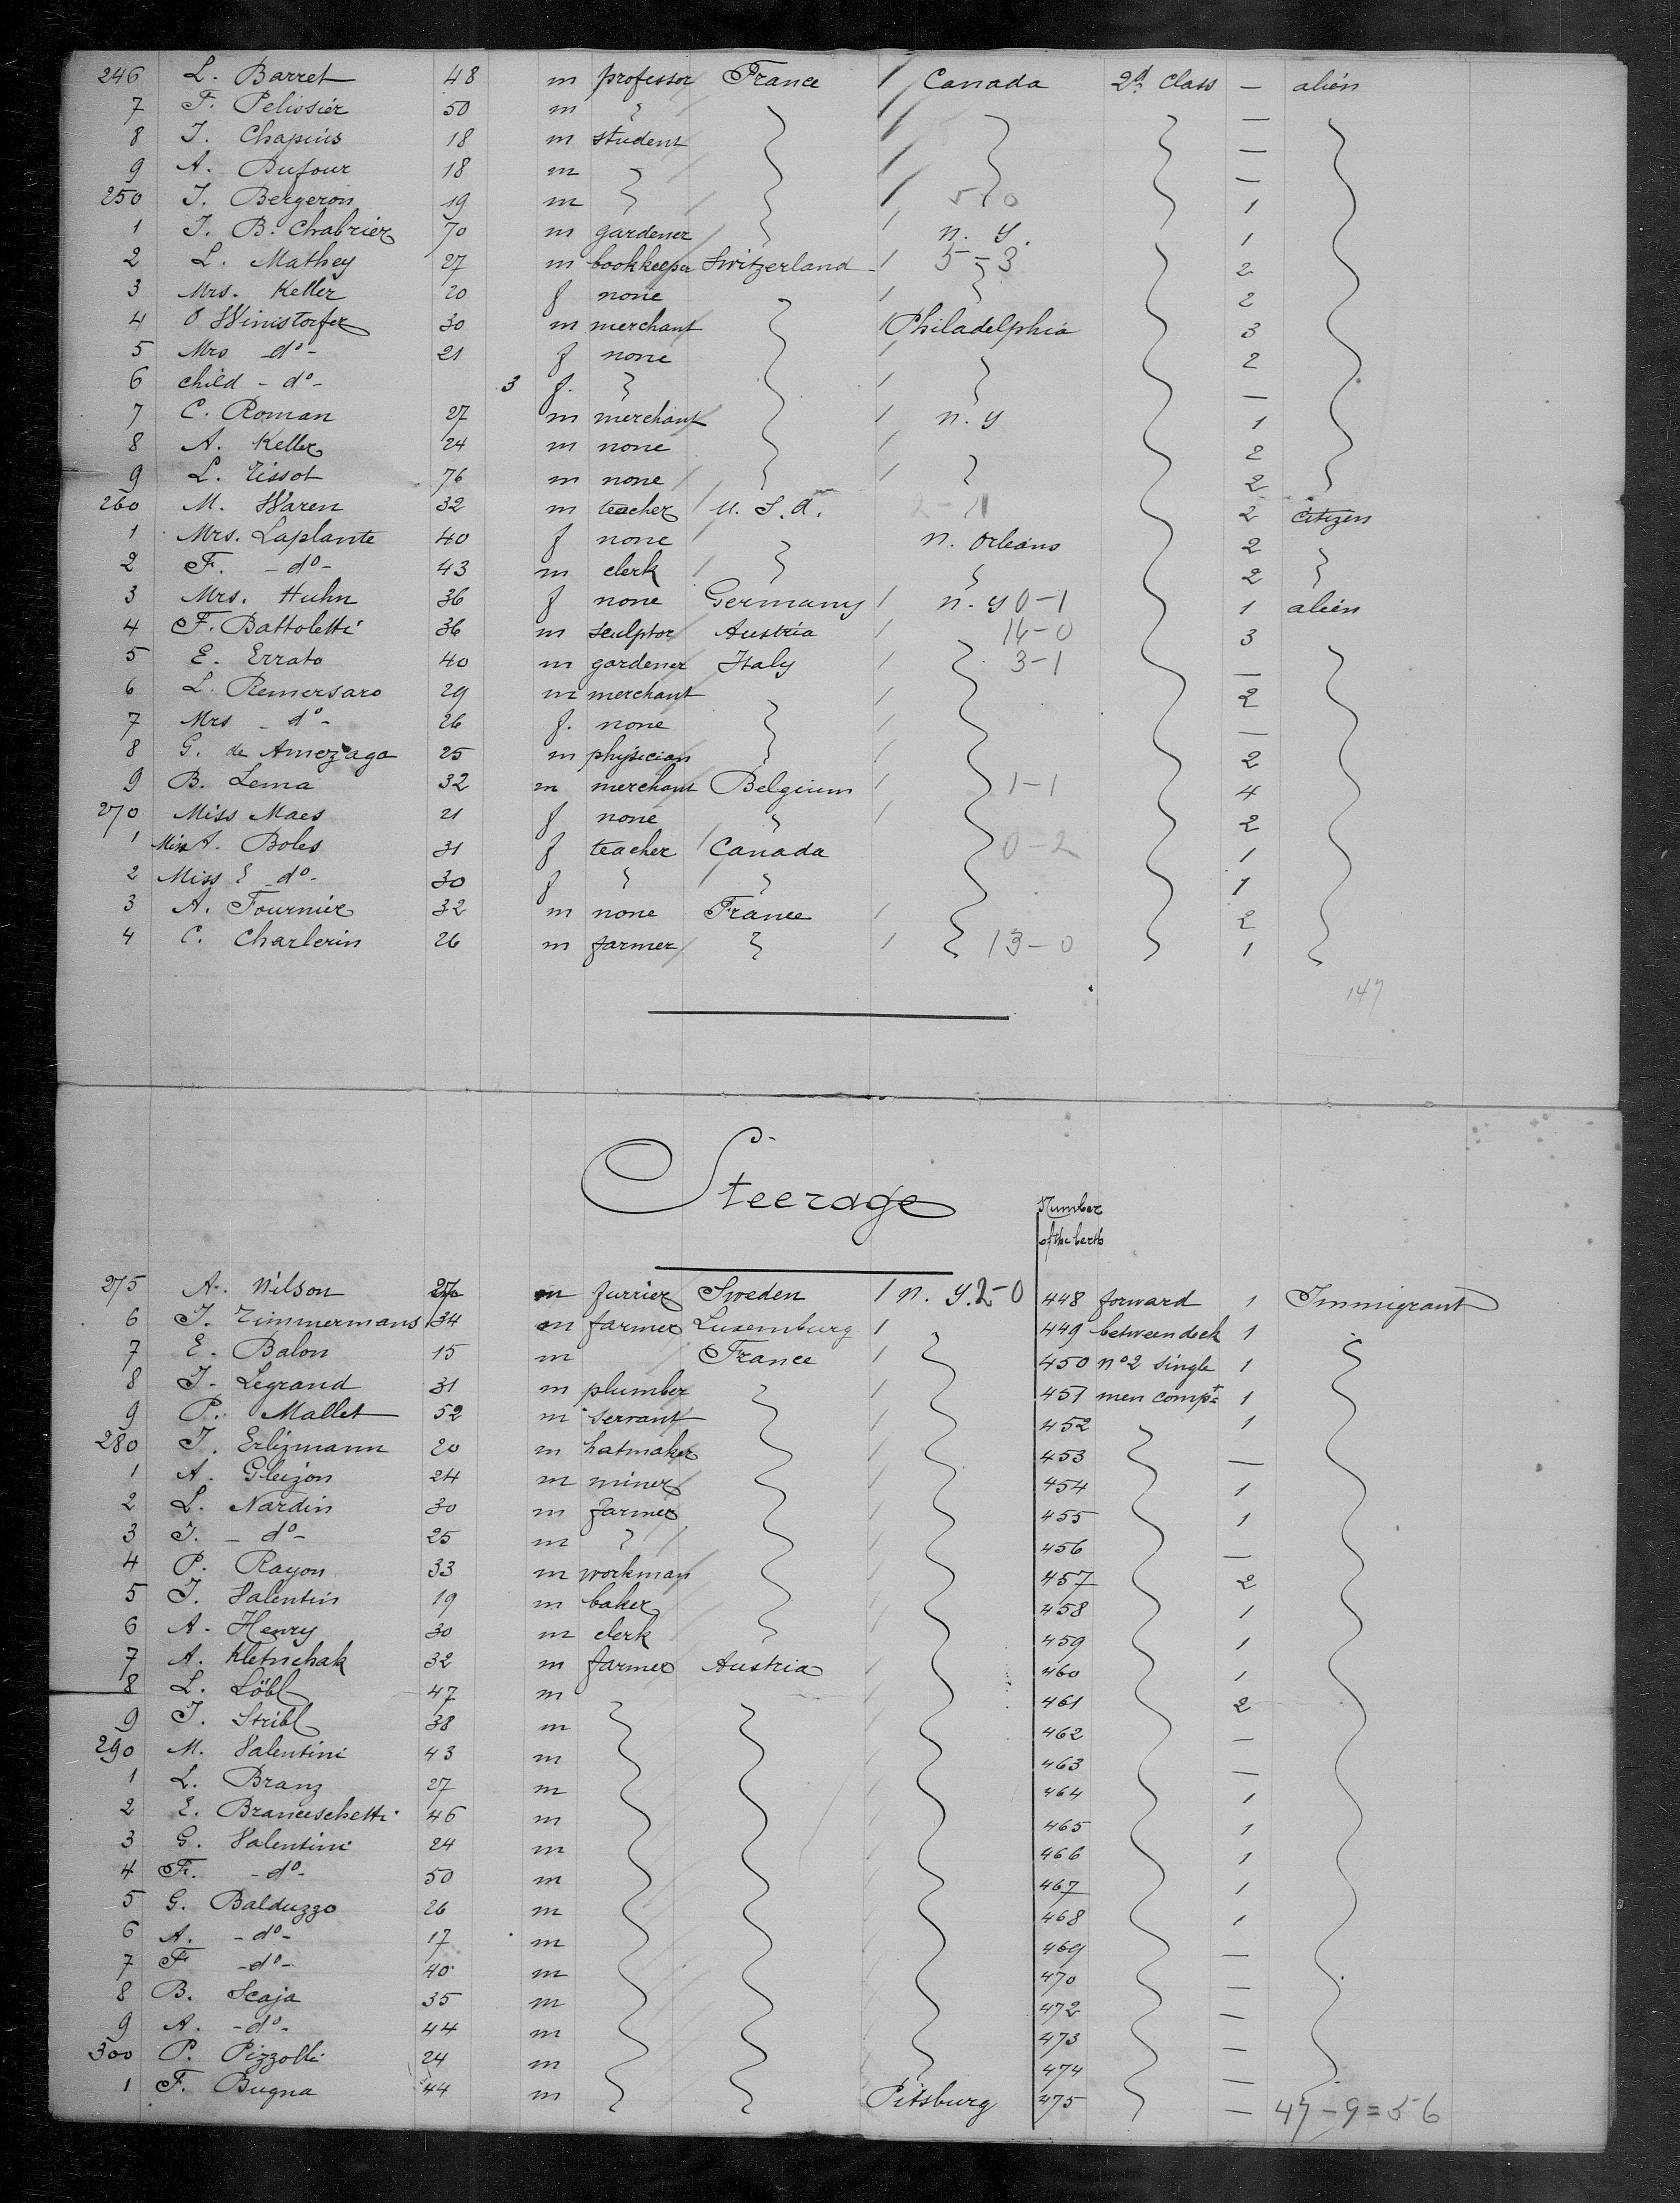 246 L. Barret 48 m professor France / Canada 2d Class — alien
7 F. Pelissier 50 m " / —
8 J. Chapuis 18 m student / —
9 A. Dufour 18 m / —
250 J. Bergeron 19 m " / 5-0 1
1 J. B. Chabrier 70 m gardener / n. y. 1
2 L. Mathey 27 m bookkeeper Switzerland / 5-3 2
3 Mrs. Keller 20 f none / 2
4 O Winistorfer 30 m merchant / Philadelphia 3
5 Mrs -do- 21 f none / 2
6 child -do- 3 f. " / —
7 C. Roman 27 m merchant / n. y 1
8 A. Keller 24 m none / 2
9 L. Tissot 76 m none / 2
260 M. Waren 32 m teacher U. S. A. 2-11 2 citizen
1 Mrs. Laplante 40 f none n. Orleans 2
2 F. -do- 43 m clerk " 2
3 Mrs. Huhn 36 f none Germany / n. y 0-1 1 alien
4 F. Battoletti 36 m sculptor Austria / 16-0 3
5 E. Errato 40 m gardener Italy / 3-1 —
6 L. Remersaro 29 m merchant / 2
7 Mrs -do- 26 f. none / —
8 G. de Amezaga 25 m physician / 2
9 B. Lema 32 m merchant Belgium / 1-1 4
270 Miss Maes 21 f none " / 2
1 Miss A. Boles 31 f teacher Canada 0-2 1
2 Miss E -do- 30 f " " 1
3 A. Fournier 32 m none France / 2
4 C. Charlerin 26 m farmer " / 13-0 1
147
Steerage
Number
of the berth
275 A. Nilson 27 m furrier Sweden / n. y. 2-0 448 forward 1 Immigrant
6 J. Timmermans 34 m farmer Luxemburg / 449 between deck 1
7 E. Balon 15 m France / 450 no 2 single 1
8 J. Legrand 31 m plumber / 451 men compt 1
9 P. Mallet 52 m servant / 452 1
280 J. Erlizmann 20 m hatmaker / 453 —
1 A. Gleizon 24 m miner / 454 1
2 L. Nardin 30 m farmer / 455 1
3 J. -do- 25 m " / 456 —
4 P. Rayon 33 m workman / 457 2
5 J. Valentin 19 m baker / 458 1
6 A. Henry 30 m clerk / 459 1
7 A. Kletschak 32 m farmer Austria / 460 1
8 L. Löbl 47 m / 461 2
9 J. Stribl 38 m / 462 —
290 M. Valentini 43 m / 463 —
1 L. Branz 27 m / 464 1
2 E. Branceschetti 46 m / 465 1
3 G. Valentini 24 m / 466 1
4 Fr. -do- 50 m / 467 1
5 G. Balduzzo 26 m / 468 1
6 A. -do- 17 m 469 —
7 F -do- 40 m 470 —
8 B. Scaja 35 m 472 —
9 A. -do- 44 m 473 —
300 P. Pizzolli 24 m 474 —
1 F. Bugna 44 m Pitsburg 475 — 47-9=56